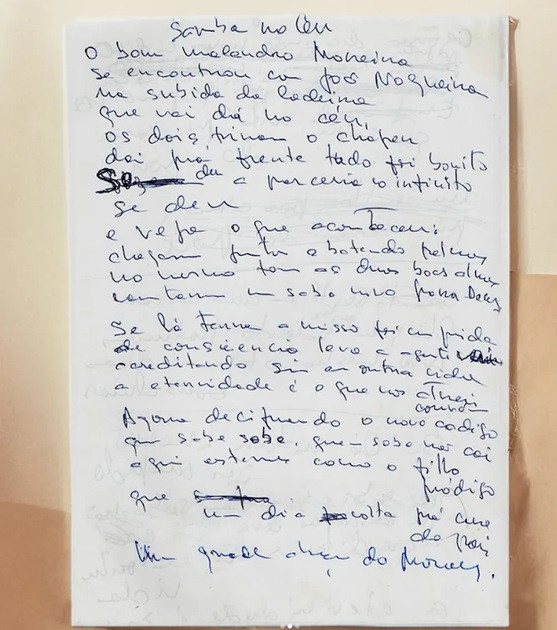 Samba no Céu
O bom malandro Moreira
se encontrou com José Nogueira
na subida da ladeira
que vai dá no céu,
os dois tiram o chapéu
daí prá frente tudo foi bonito
deu a parceria co infinito
se deu
e veja o que aconteceu:
chegam juntos e batendo palmas
no mesmo tom as duas boas almas
cantam um samba novo para Deus
Se lá Terra a missão foi cumprida
de consciência leve a gente
acreditando sim em outra vida
a eternidade é o que nos
convém
Agora decifrando o novo código
quem sabe sobe, quem sobe não cai
aqui estamos como o filho
pródigo
que
um dia volta prá casa
do pai
Um grande abraço do Moraes.